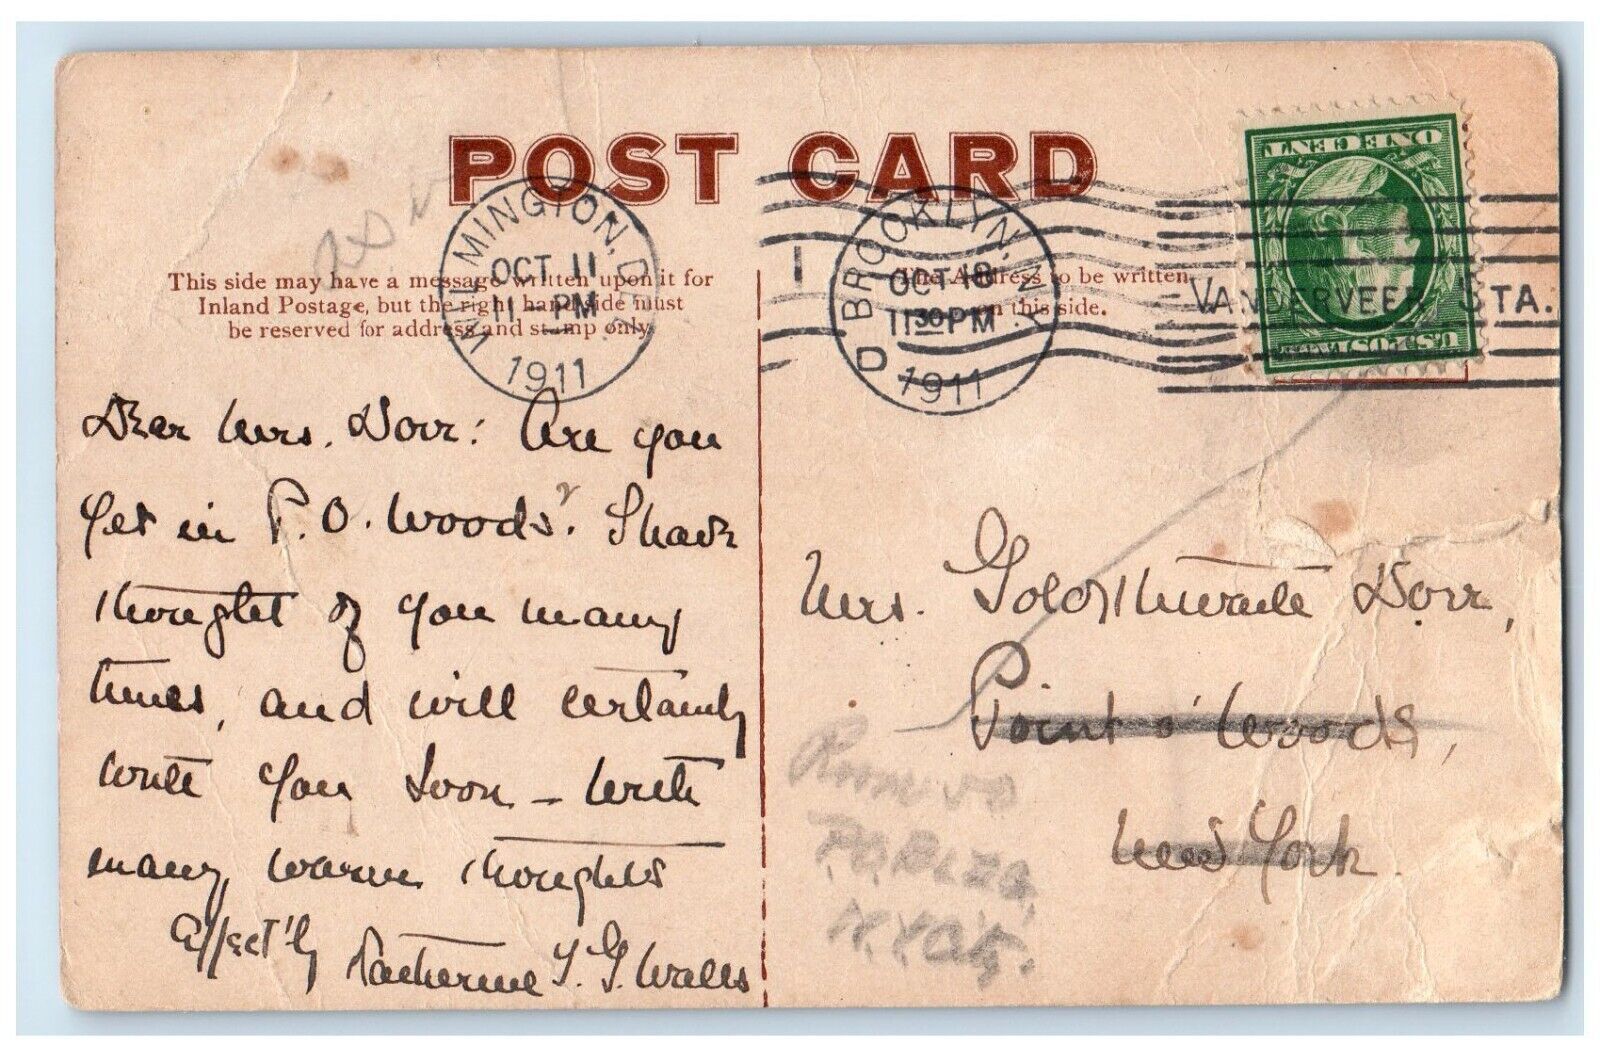 POST CARD
This side may have a message written upon it for
Inland Postage, but the right hand side must
be reserved for address and stamp only.
The Address to be written
on this side.
WILMINGTON, D
OCT 11
11 PM
1911
1
BROOKLYN, N.Y.
D
OCT 18
11 30 PM
1911
VANDERVEER STA.
ONE CENT
U.S. POSTAGE
Dear Mrs. Dorr: Are you
yet in P.O. Woods? I have
thought of you many
times, and will certainly
write you soon — With
many warm thoughts
Affect'ly
Katherine T. G. Walls
Mrs. Goldthwaite Dorr,
Point o' Woods,
New York.
Room 50
P.O. BLDG,
N.Y. City.